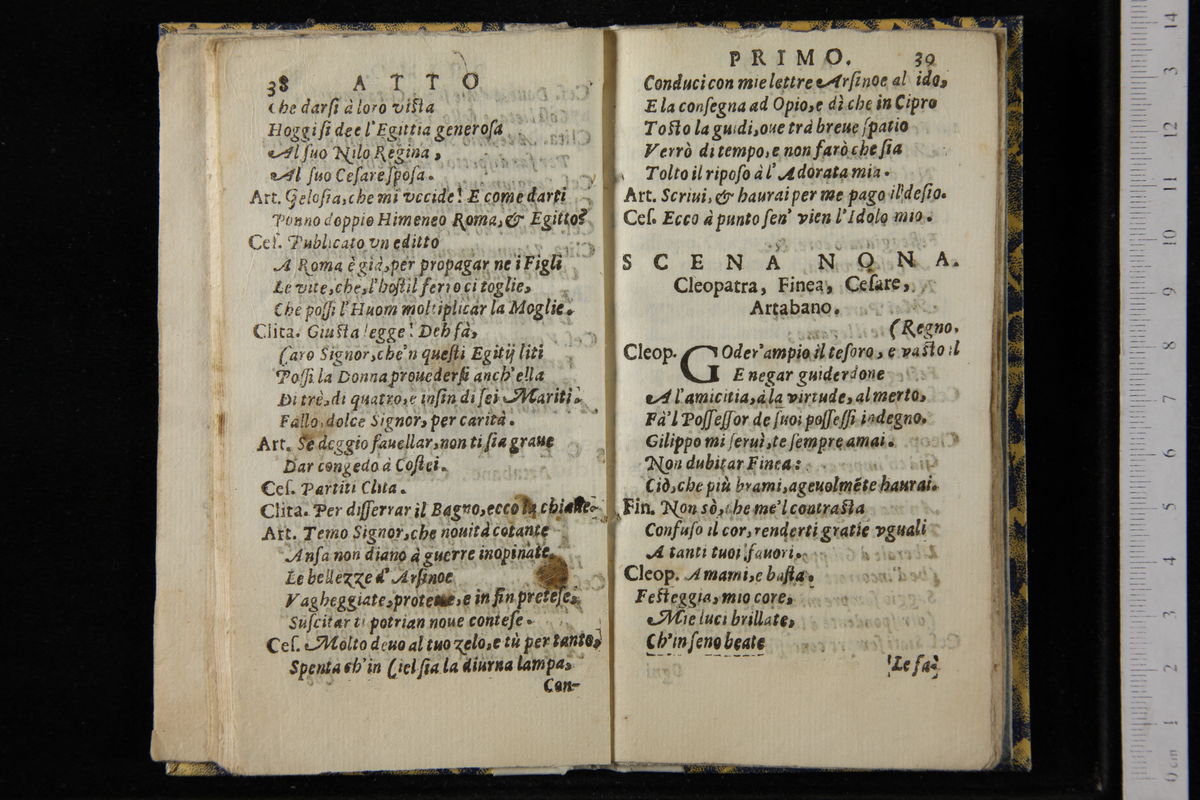 38 ATTO
Che darsi à loro vista
Hoggi si dee l'Egittia generosa
Al suo Nilo Regina,
Al suo Cesare sposa.
Art. Gelosia, che mi vccide! E come darti
Ponno doppio Himeneo Roma, & Egitto?
Ces. Publicato vn editto
A Roma è già, per propagar ne i Figli
Le vite, che, l'hostil ferro ci toglie,
Che possi l'Huom moltiplicar la Moglie.
Clita. Giusta legge! Deh fà,
Caro Signor, che'n questi Egitij liti
Possi la Donna prouedersi anch'ella
Di trè, di quatro, e insin di sei Mariti.
Fallo, dolce Signor, per carità.
Art. Se deggio fauellar, non ti sia graue
Dar congedo à Costei.
Ces. Partiti Clita.
Clita. Per disserrar il Bagno, ecco la chiaue.
Art. Temo Signor, che nouità cotante
Ansa non diano à guerre inopinate
Le bellezze d'Arsinoe
Vagheggiate, protette, e in fin pretese,
Suscitar ti potrian noue contese.
Ces. Molto deuo al tuo zelo, e tù per tanto,
Spenta ch'in Ciel sia la diurna lampa,
Con-
PRIMO. 39
Conduci con mie lettre Arsinoe al ido,
E la consegna ad Opio, e dì che in Cipro
Tosto la guidi, oue trà breue spatio
Verrò di tempo, e non farò che sia
Tolto il riposo à l'Adorata mia.
Art. Scriui, & haurai per me pago il desio.
Ces. Ecco à punto sen' vien l'Idolo mio.
SCENA NONA.
Cleopatra, Finea, Cesare,
Artabano.
(Regno.
Cleop. Goder'ampio il tesoro, e vasto il
E negar guiderdone
A l'amicitia, à la virtude, al merto,
Fà'l Possessor de suoi possessi indegno.
Gilippo mi seruì, te sempre amai.
Non dubitar Finea:
Ciò, che più brami, ageuolmẽte haurai.
Fin. Non sò, che me'l contrasta
Confuso il cor, renderti gratie vguali
A tanti tuoi fauori.
Cleop. Amami, e basta.
Festeggia, mio core,
Mie luci brillate,
Ch'in seno beate
Le fa